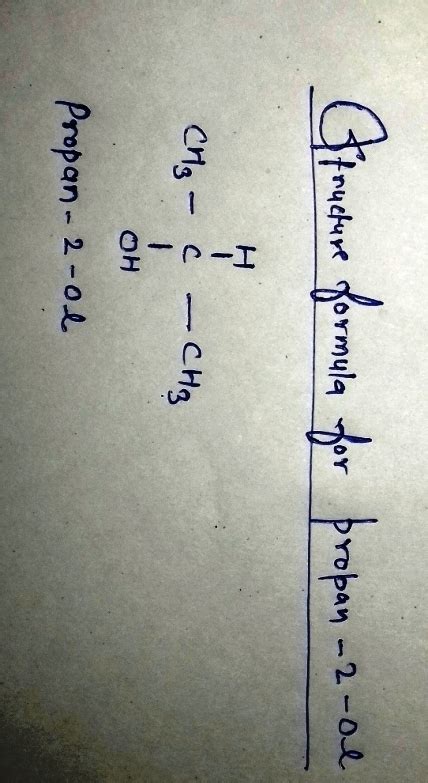 Structure formula for propan-2-ol
H
CH3 - C - CH3
OH
Propan-2-ol